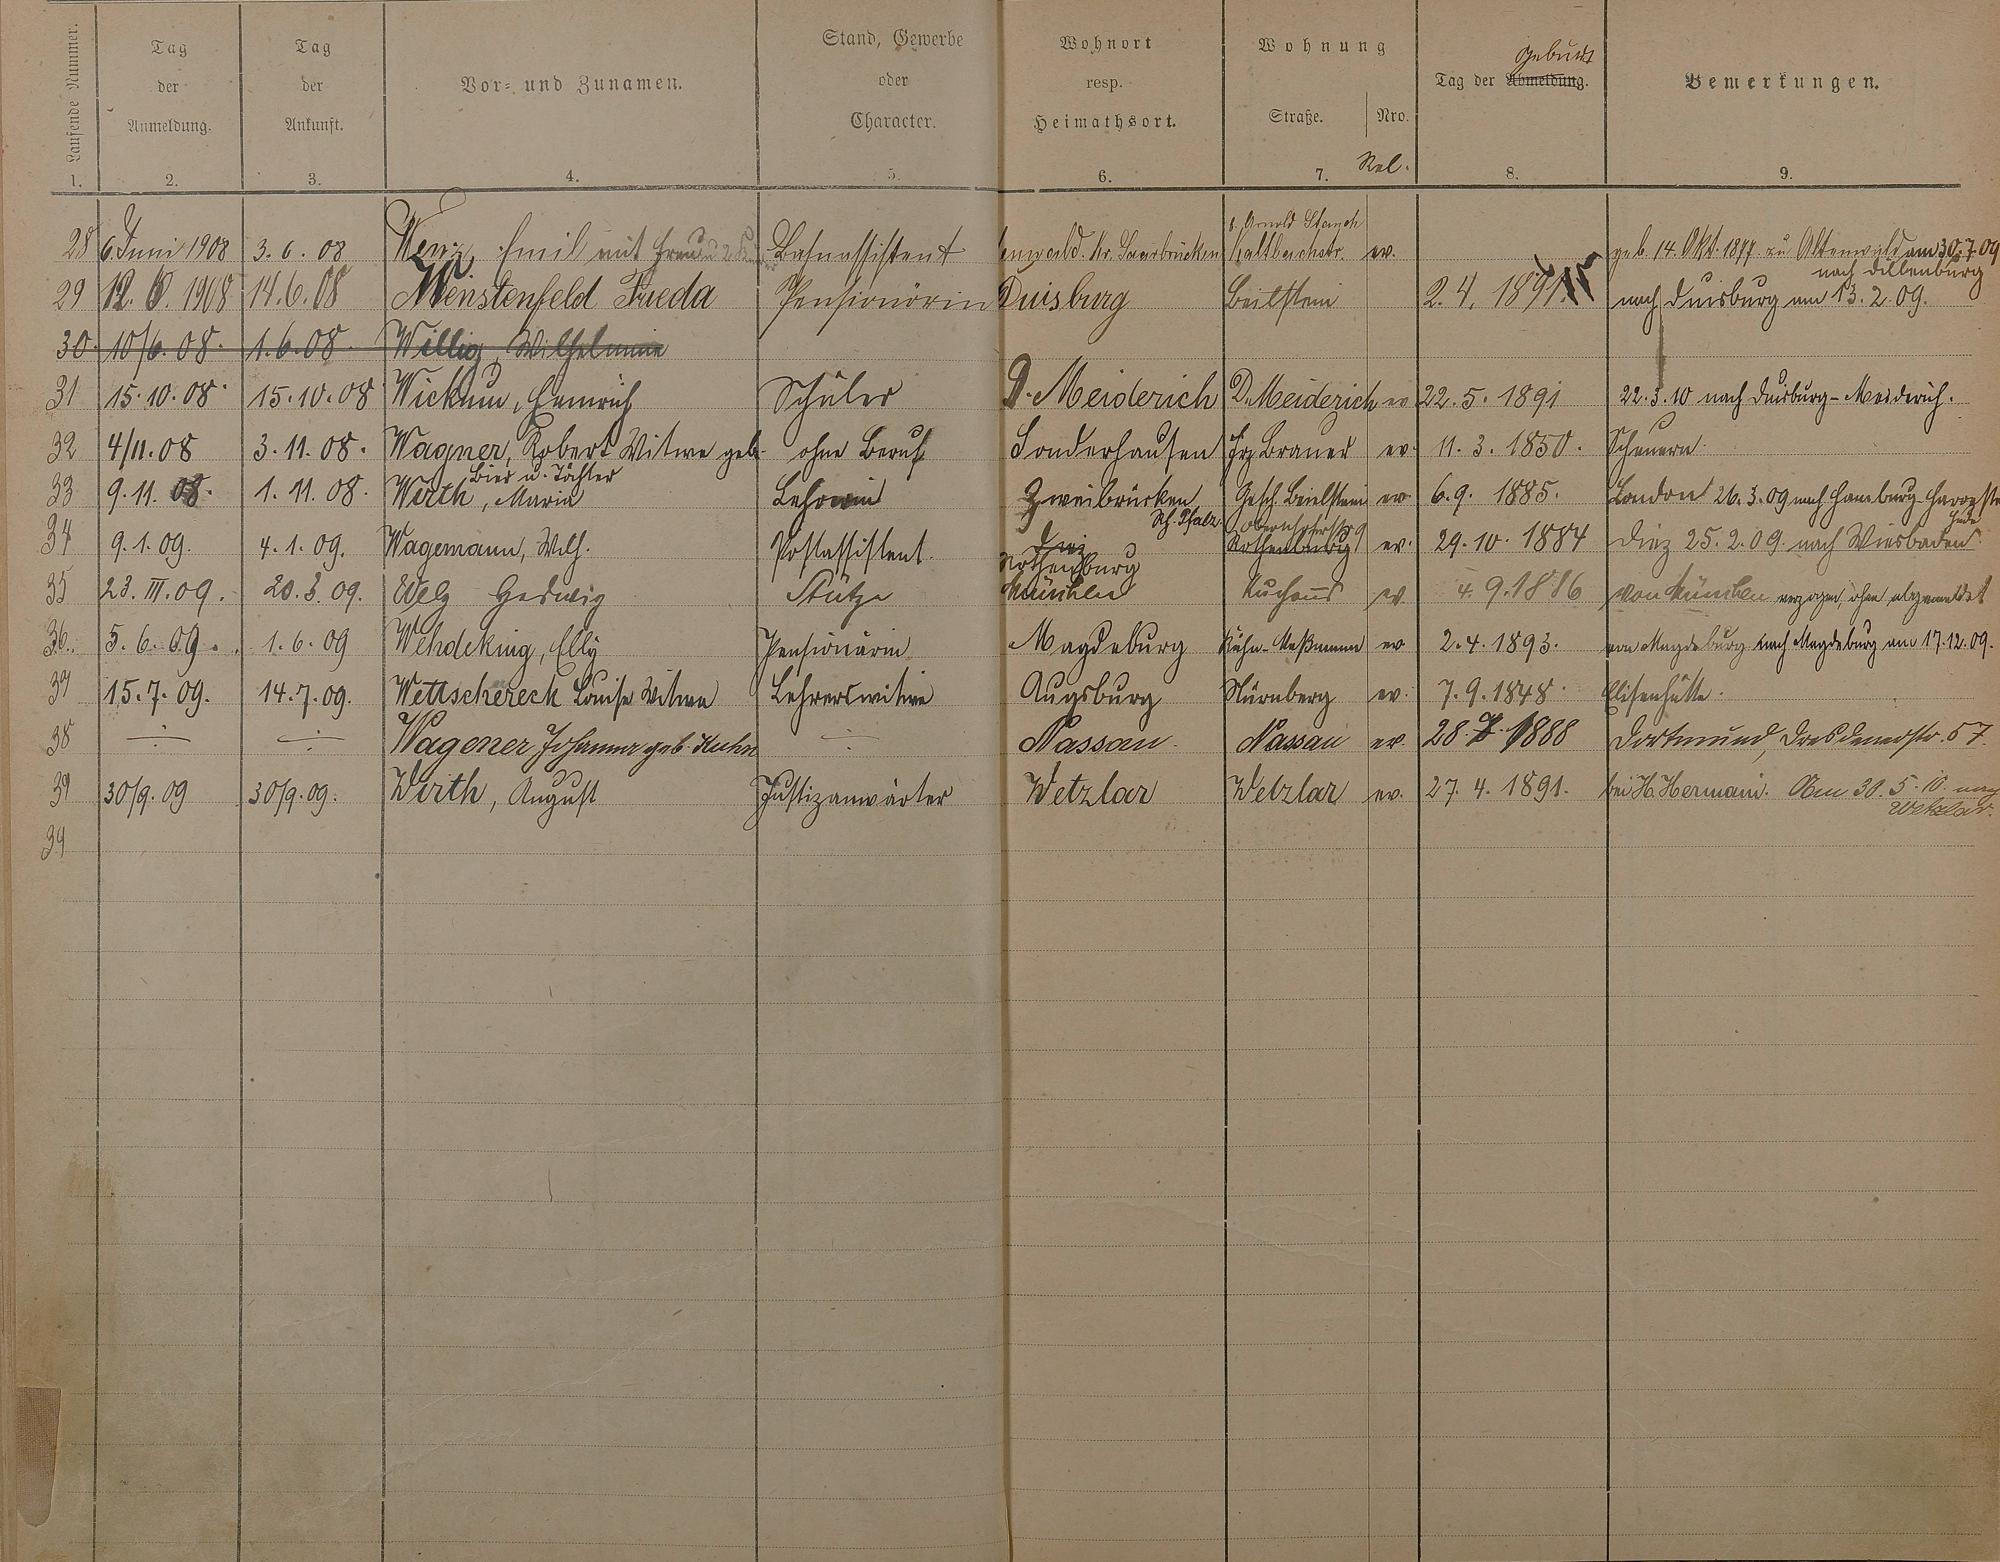 Laufende Nummer. Tag der Anmeldung. Tag der Ankunft. Vor- und Zunamen. Stand, Gewerbe oder Character. Wohnort resp. Heimathsort. Wohnung Straße. Nro. Rel. Tag der Abmeldung. Geburt Bemerkungen.
1. 2. 3. 4. 5. 6. 7. 8. 9.
28 6. Juni 1908 3. 6. 08 Emil mit Frau u. 2 Bahnassistent Kr. Saarbrücken Arnold ev. geb. 14. Okt. 1877 zu Altenwald am 30.7.09 nach Dillenburg
29 12. 6. 1908 14. 6. 08 Menstenfeld Frieda Pensionärin Duisburg Beilstein 2. 4. nach Duisburg am 13. 2. 09.
30. 10/6. 08. 1. 6. 08. Willig, Wilhelmine
31 15. 10. 08. 15. 10. 08 Wickum, Heinrich Schüler D. Meiderich D. Meiderich ev 22. 5. 1891 22. 3. 10 nach Duisburg-Meiderich.
32 4/11. 08 3. 11. 08. Wagner, Robert Witwe geb. Bier u. Töchter ohne Beruf Sonderhausen Frz. Brauer ev. 11. 3. 1850. Scheuern.
33 9. 11. 08. 1. 11. 08. Wirth, Maria Lehrerin Zweibrücken Gesch. Beielstein ev. 6. 9. 1885. London 26. 3. 09 nach Hamburg
34 9. 1. 09. 4. 1. 09. Wagemann, Wilh. Postassistent. Diez Rothenburg Rothenburg ev. 29. 10. 1884 Diez 25. 2. 09. nach Wiesbaden.
35 23. III. 09. 20. 3. 09. Welz Hedwig Stütze München ev. 4. 9. 1886 von München verzogen, ohne abgemeldet
36. 5. 6. 09. 1. 6. 09 Wehdeking, Elly Pensionärin Magdeburg ev 2. 4. 1893. von Magdeburg nach Magdeburg am 17. 12. 09.
37 15. 7. 09. 14. 7. 09. Wettschereck Louise Witwe Lehrerswitwe Augsburg Nürnberg ev. 7. 9. 1848. Elisenhütte.
38 Wagener Johanna geb. Kuhn Nassau. Nassau ev. 28. 1888 Dortmund, Dresdenerstr. 57.
39 30/9. 09 30/9. 09. Wirth, August Justizanwärter Wetzlar Wetzlar ev. 27. 4. 1891. bei H. Hermani. Am 30. 5. 10. nach Wetzlar.
39